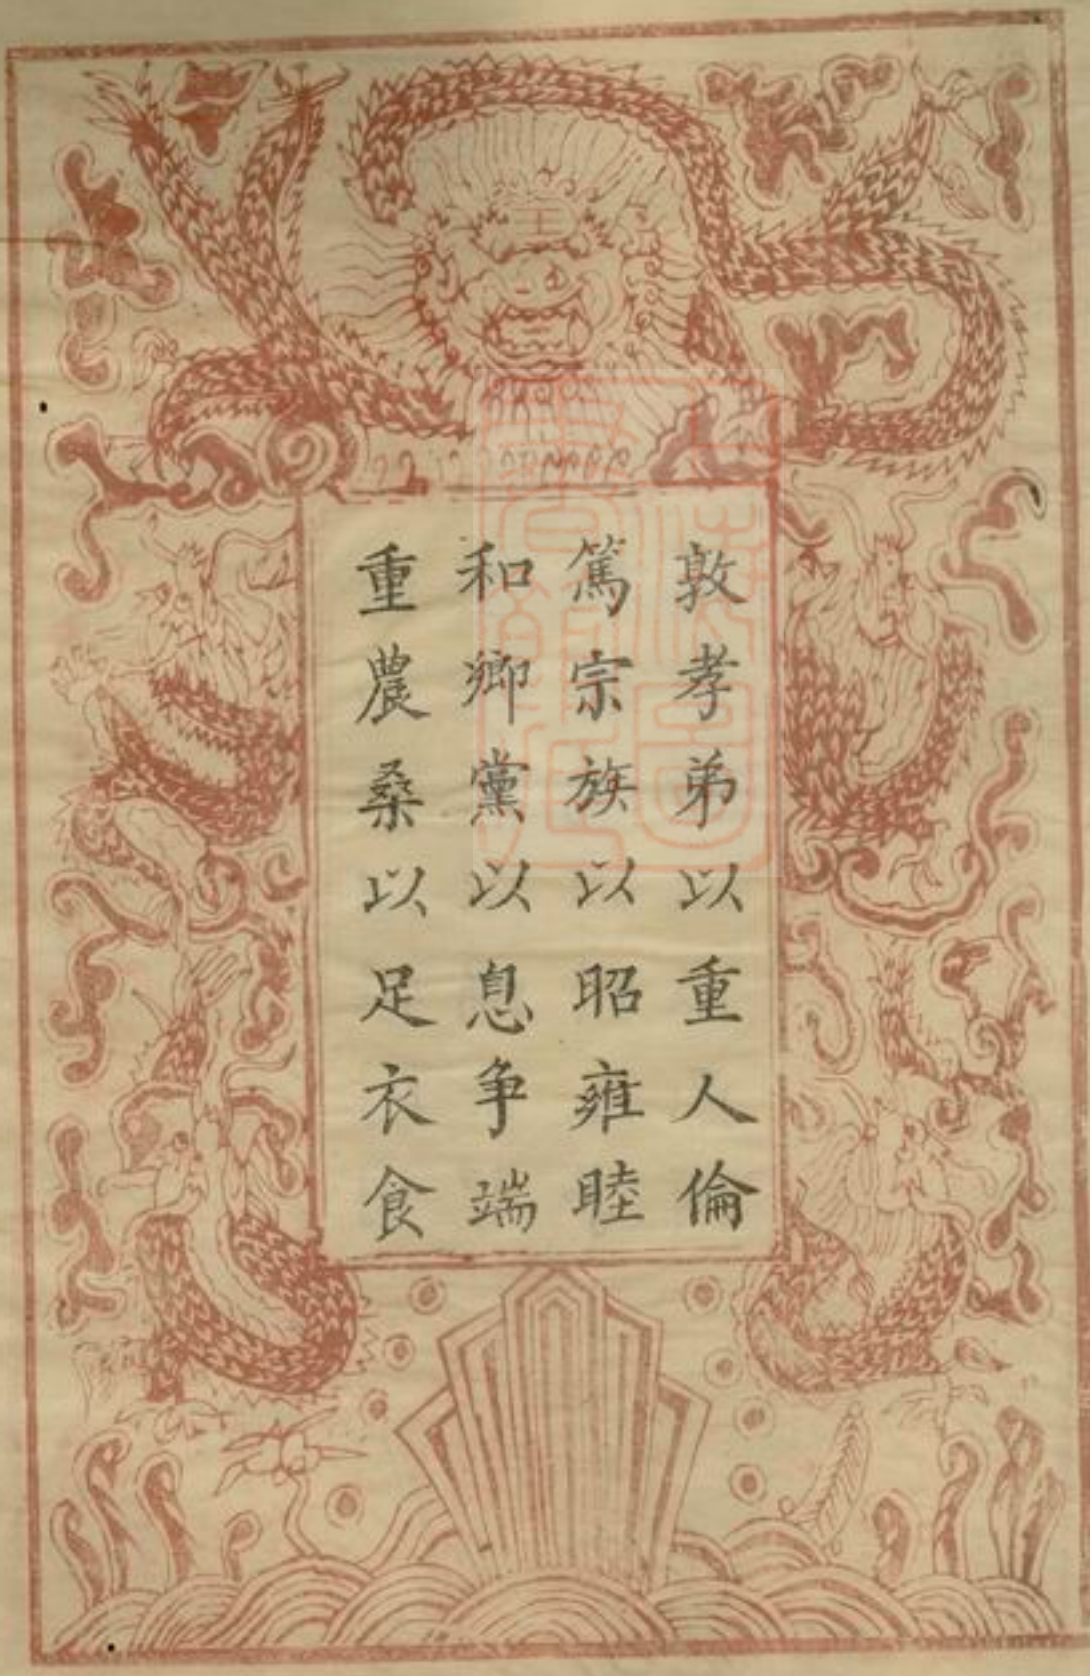 敦孝弟以重人倫
篤宗族以昭雍睦
和鄉黨以息争端
重農桑以足衣食
王